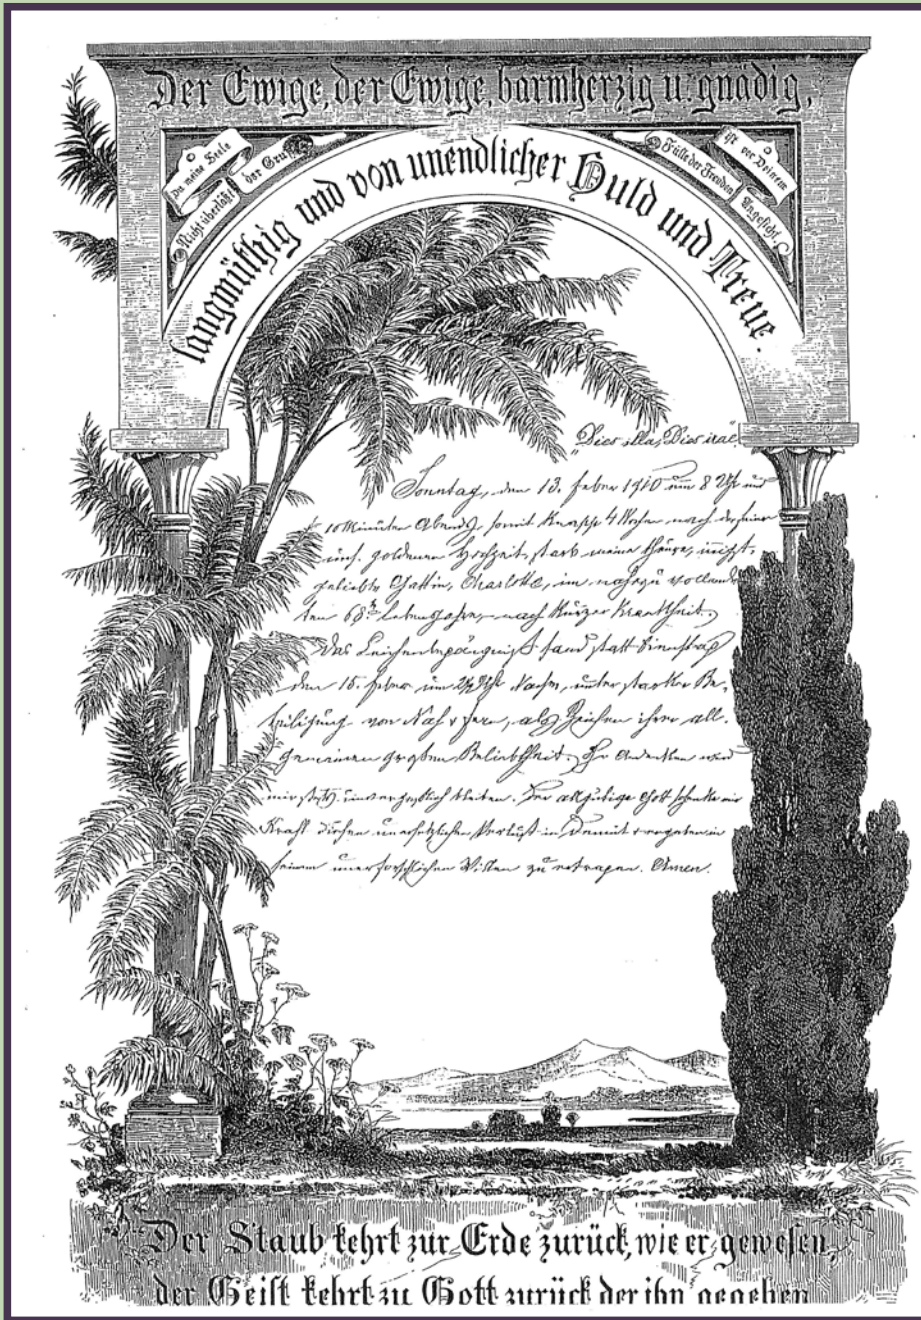 Der Ewige, der Ewige, barmherzig u. gnädig,
langmüthig und von unendlicher Huld und Treue.
Du meine Seele
der Gruft
Nicht überläßt
Fülle der Freuden
ist vor Deinem
Angesicht.
"Dies illa, Dies irae"
Sonntag, den 13. Feber 1910 um 8 Uhr und
10 Minuten Abends, somit knapp 4 Wochen nach der Feier
uns. goldenen Hochzeit, starb meine theure, innigst-
geliebte Gattin, Charlotte, im nahezu vollende-
ten 68ten Lebensjahre, nach kurzer Krankheit.
Das Leichenbegängniß fand statt Dienstag
den 15. Feber um Uhr Nachm. unter starker Be-
theiligung von Nah & Fern, als Zeichen ihrer all-
gemeinen großen Beliebtheit. Ihr Andenken wird
mir stets unvergeßlich bleiben. Der allgütige Gott schenke mir
Kraft diesen unersetzlichen Verlust in Demuth & ergeben in
seinem unerforschlichen Willen zu ertragen. Amen.
Der Staub kehrt zur Erde zurück, wie er gewesen,
der Geist kehrt zu Gott zurück der ihn gegeben